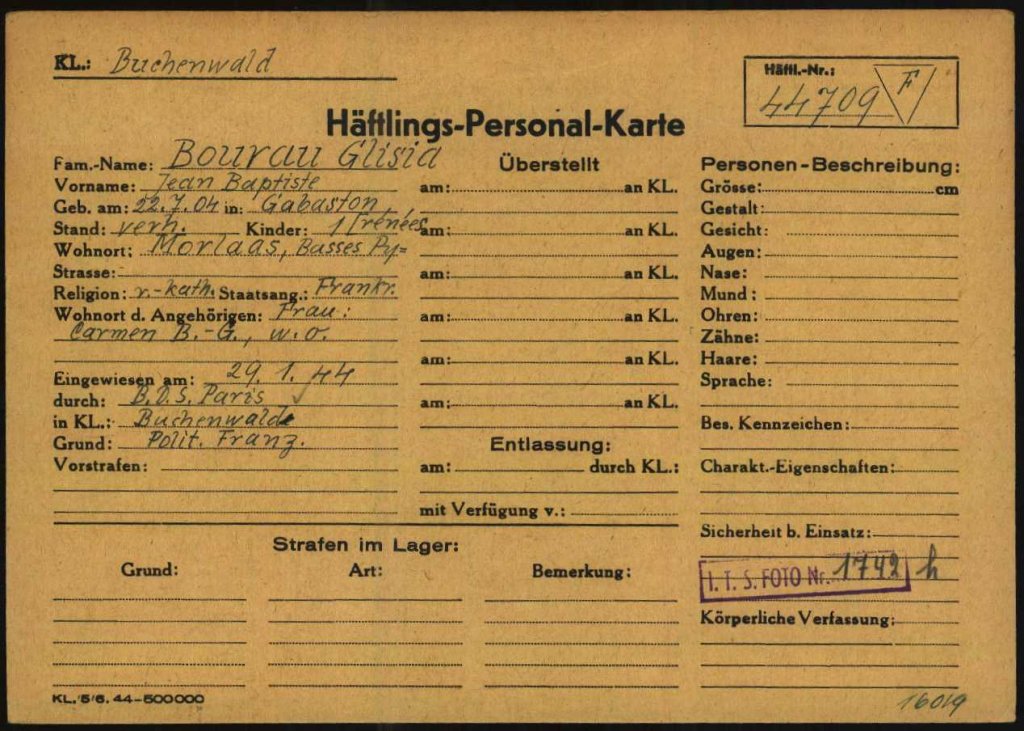 KL.: Buchenwald
Häftl.-Nr.:
44709 F
Häftlings-Personal-Karte
Fam.-Name: Bourau Glisia
Vorname: Jean Baptiste
Geb. am: 22.7.04 in: Gabaston
Stand: verh. Kinder: 1 rénées
Wohnort: Morlaas, Basses Py=
Strasse:
Religion: r.-kath. Staatsang.: Frankr.
Wohnort d. Angehörigen: Frau:
Carmen B.-G., w.o.
Eingewiesen am: 29.1.44
durch: B.D.S. Paris
in KL.: Buchenwald
Grund: Polit. Franz.
Vorstrafen:
Überstellt
am: an KL.
am: an KL.
am: an KL.
am: an KL.
am: an KL.
am: an KL.
Entlassung:
am: durch KL.:
mit Verfügung v.:
Personen-Beschreibung:
Grösse: cm
Gestalt:
Gesicht:
Augen:
Nase:
Mund:
Ohren:
Zähne:
Haare:
Sprache:
Bes. Kennzeichen:
Charakt.-Eigenschaften:
Sicherheit b. Einsatz:
I.T.S. FOTO Nr. 1742 h
Körperliche Verfassung:
Strafen im Lager:
Grund: Art: Bemerkung:
KL./5/6. 44-500000
16019